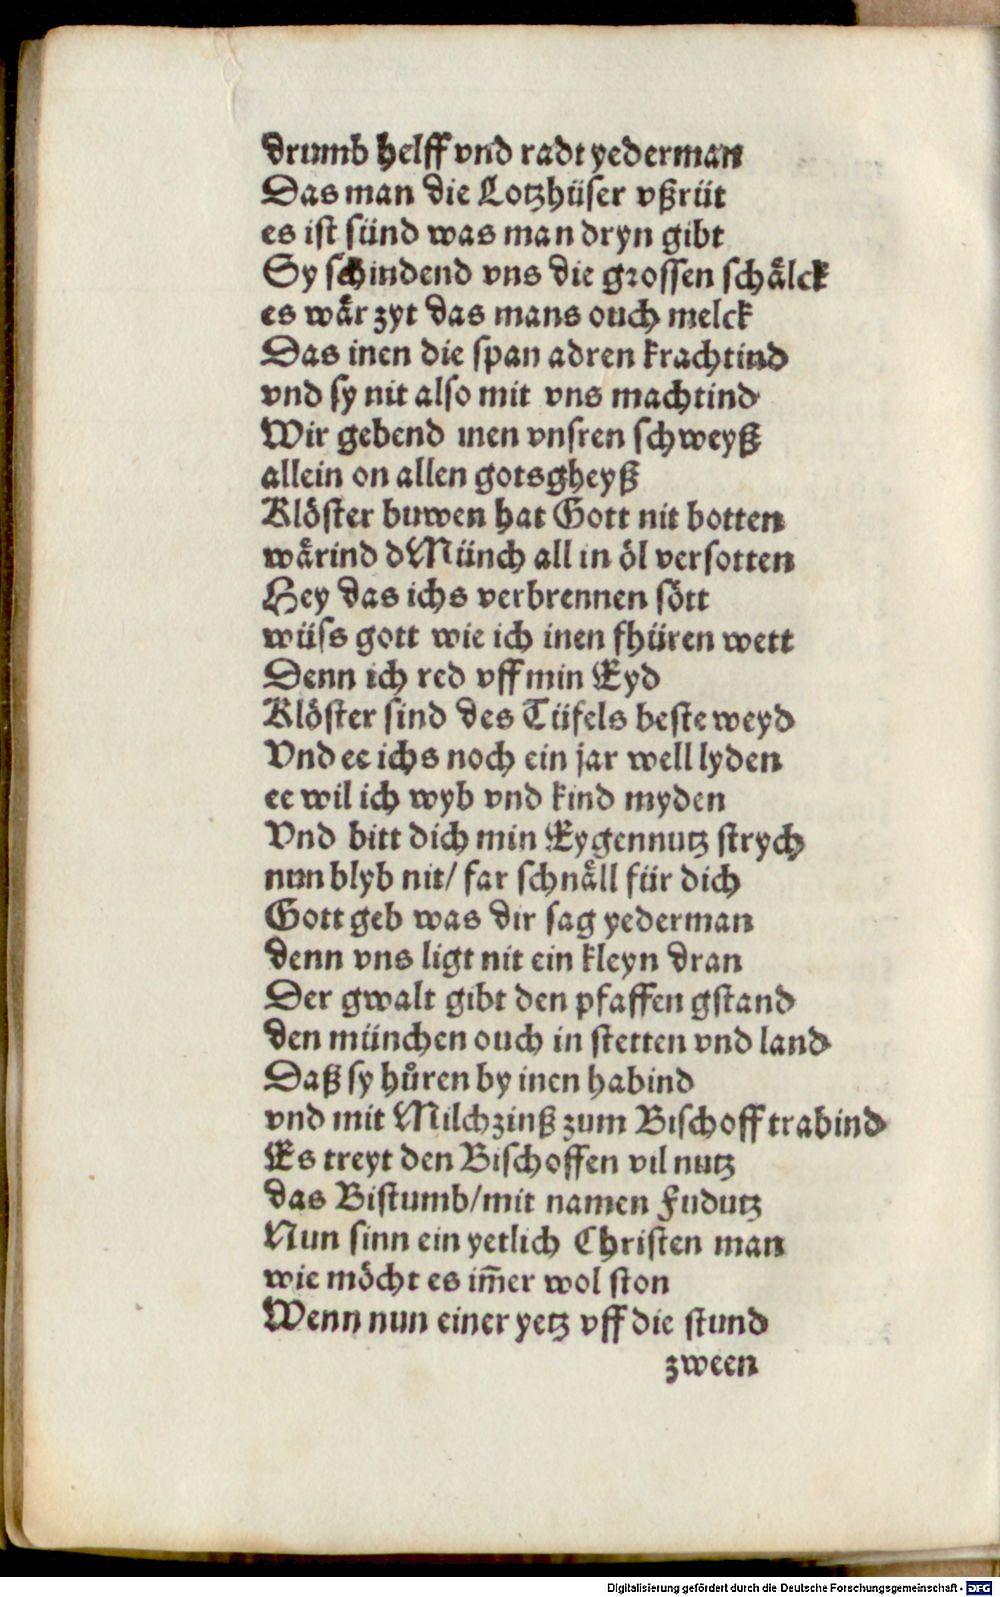 drumb helff vnd radt yederman
Das man die Lotzhüser vßrüt
es ist sünd was man dryn gibt
Sy schindend vns die grossen schaͤlck
es waͤr zyt das mans ouch melck
Das inen die span adren krachtind
vnd sy nit also mit vns machtind
Wir gebend inen vnsren schweyß
allein on allen gotsgheyß
Klöster buwen hat Gott nit botten
waͤrind dMünch all in öl versotten
Hey das ichs verbrennen sött
wüss gott wie ich inen fhüren wett
Denn ich red vff min Eyd
Klöster sind des Tüfels beste weyd
Vnd ee ichs noch ein jar well lyden
ee wil ich wyb vnd kind myden
Vnd bitt dich min Eygennutz strych
nun blyb nit/ far schnaͤll für dich
Gott geb was dir sag yederman
denn vns ligt nit ein kleyn dran
Der gwalt gibt den pfaffen gstand
den münchen ouch in stetten vnd land
Daß sy huͦren by inen habind
vnd mit Milchzinß zum Bischoff trabind
Es treyt den Bischoffen vil nutz
das Bistumb/mit namen Fudutz
Nun sinn ein yetlich Christen man
wie möcht es im̄er wol ston
Wenn nun einer yetz vff die stund
zween
Digitalisierung gefördert durch die Deutsche Forschungsgemeinschaft - DFG